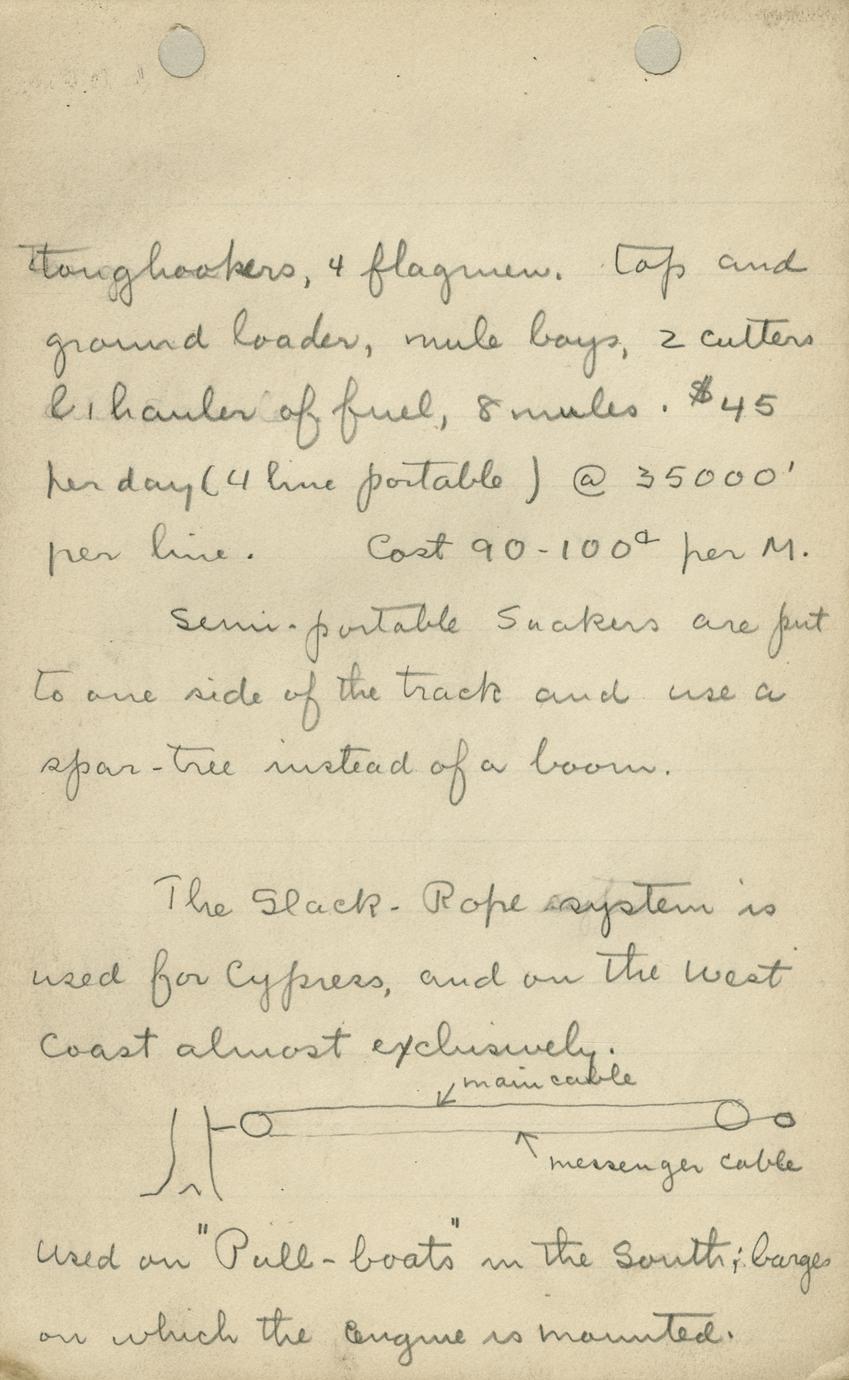 tonghookers, 4 flagmen. Top and
ground loader, mule boys, 2 cutters
& 1 hauler of fuel, 8 mules. $45
per day (4 line portable) @ 35000'
per line. Cost 90-100¢ per M.
Semi-portable Snakers are put
to one side of the track and use a
spar-tree instead of a boom.
The Slack-Rope system is
used for Cypress, and on the West
Coast almost exclusively.
main cable
messenger cable
Used on "Pull-boats" in the South; barges
on which the engine is mounted.